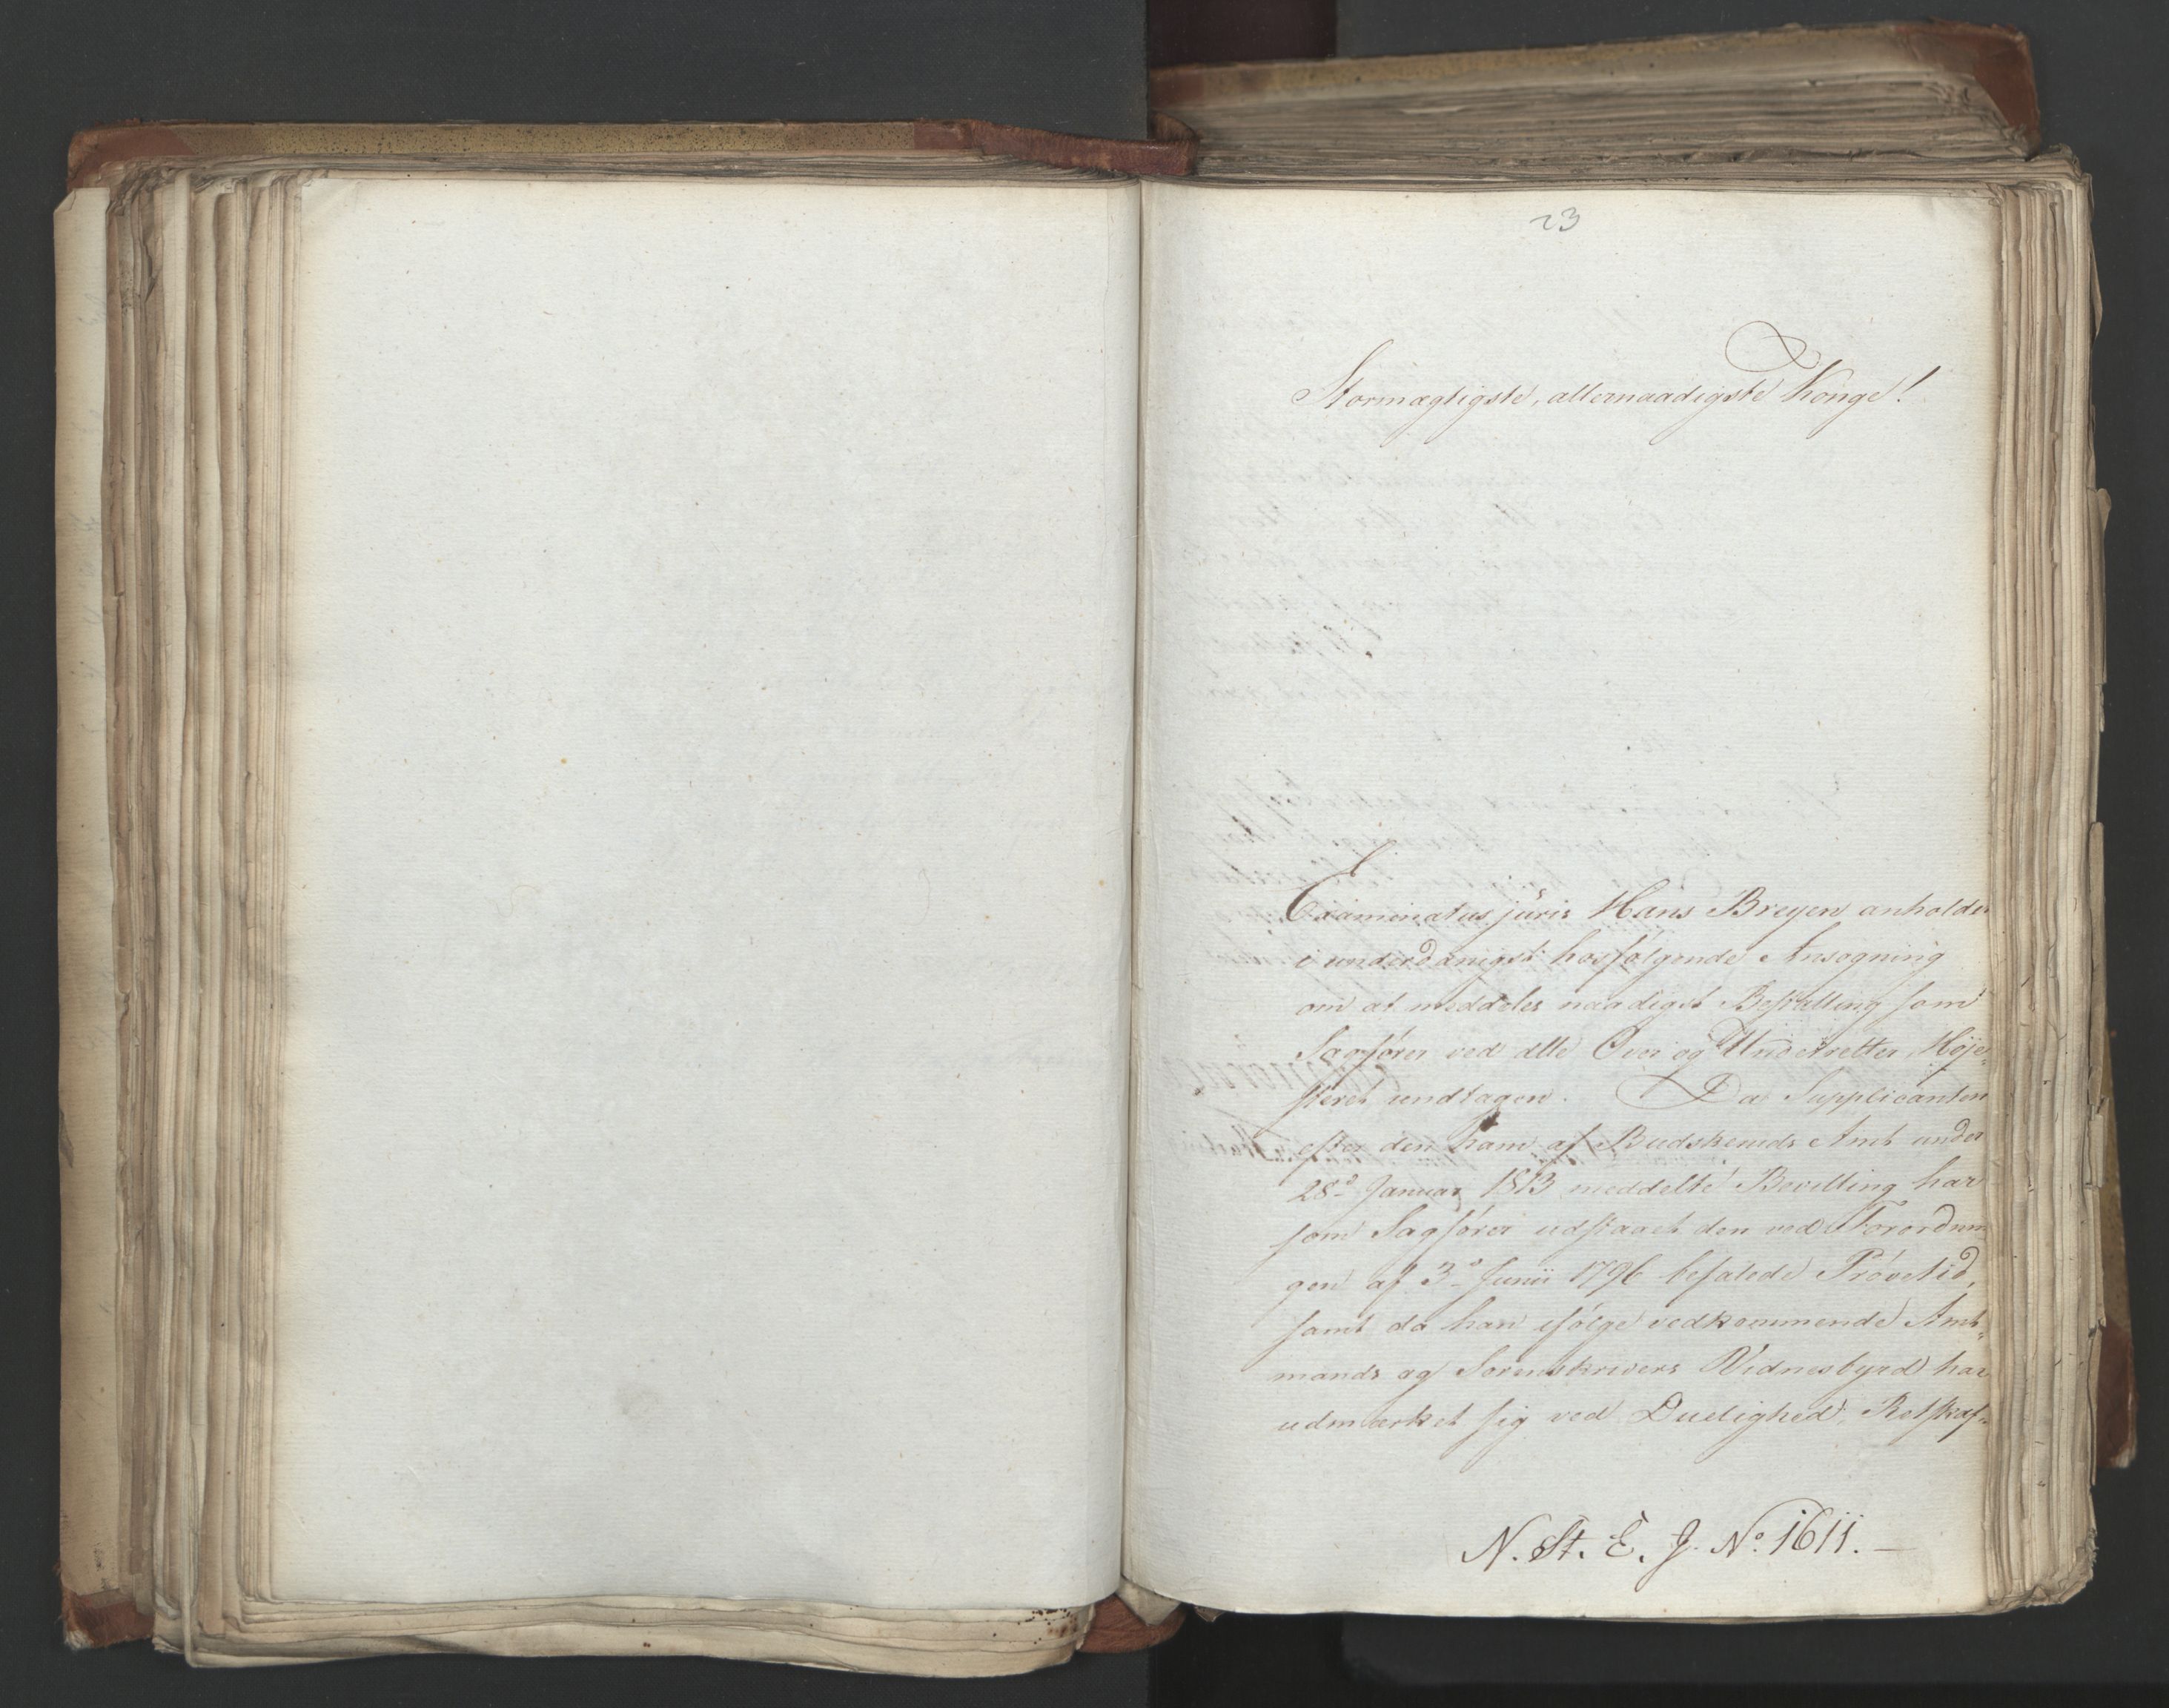 23
Stormægtigste, allernaadigste Konge!
Examinatus juris Hans Breyen anholder
i underdanigst hosfølgende Ansøgning
om at meddeles naadigst Bestalling som
Sagfører ved alle Over og Underretter, Høje-
steret undtagen. Da Supplicanten
efter den ham af Budskeruds Amt under
28de Januar 1813 meddelte Bevilling har
som Sagfører udstaaet den ved Forordnin-
gen af 3de Junii 1796 befalede Prøvetid,
samt da han ifølge vedkommende Amt-
mands og Sorenskrivers Vidnesbyrd har
udmærket sig ved Duelighed, Retskaf-
N. St. E. J. No. 1611. —